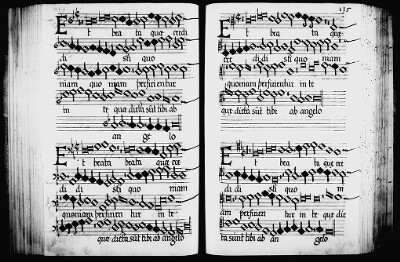 Et bea ta que credi
di sti quo
niam quo niam perficientur
in te que dicta sūt tibi ab
an ge lo
Et beata beata que cre
di di sti quo niam
quoniam perficien tur in te
que dicta sūt tibi ab angelo
135
Et bea ta que
cre di di sti quo niam
quoniam perficientur in te
que dicta sūt tibi ab angelo
Et bea ta que cre
di di sti quo ni
am perficien tur in te que dic
ta sunt tibi ab an gelo